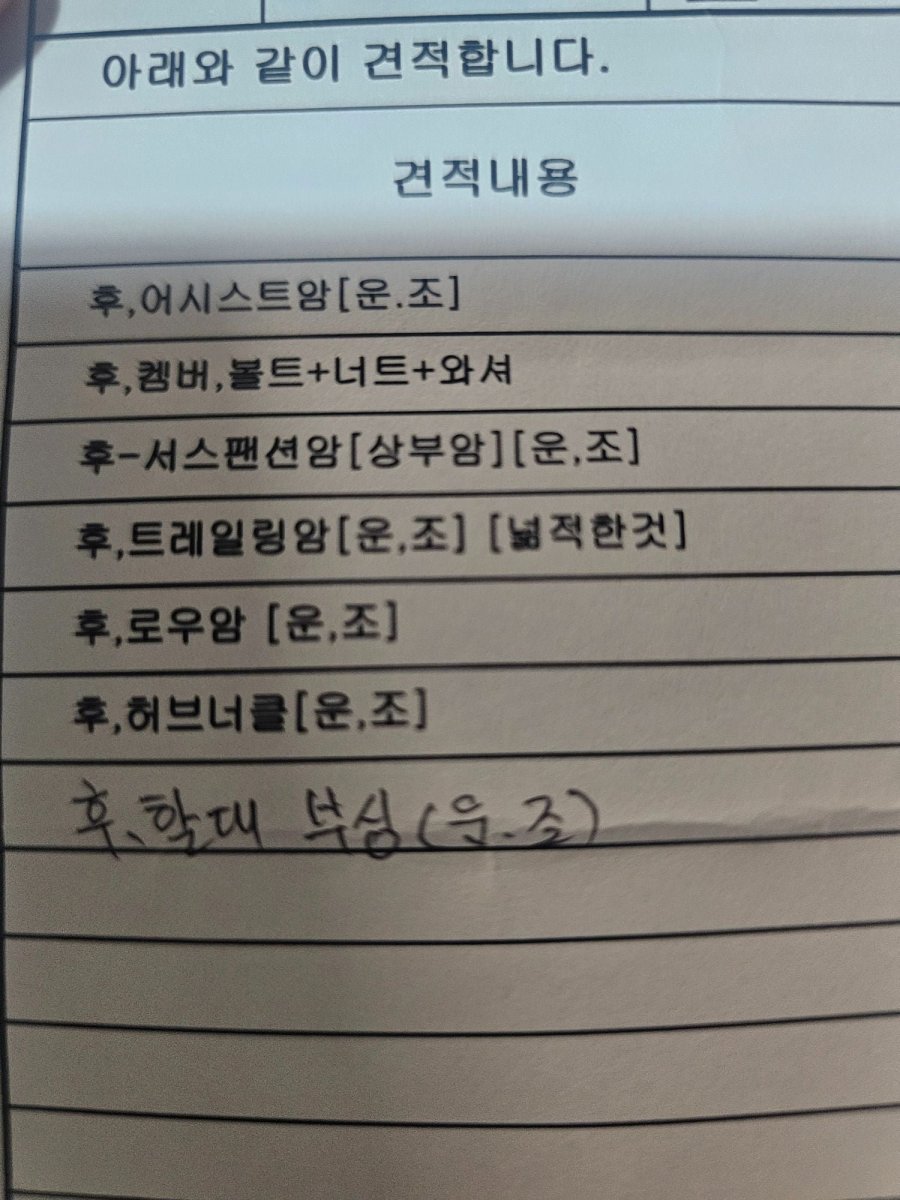 아래와 같이 견적합니다.
견적내용
후,어시스트암[운.조]
후,켐버,볼트+너트+와셔
후-서스팬션암[상부암][운,조]
후,트레일링암[운,조] [넓적한것]
후,로우암 [운,조]
후,허브너클[운,조]
후.활대 부싱(운.조)